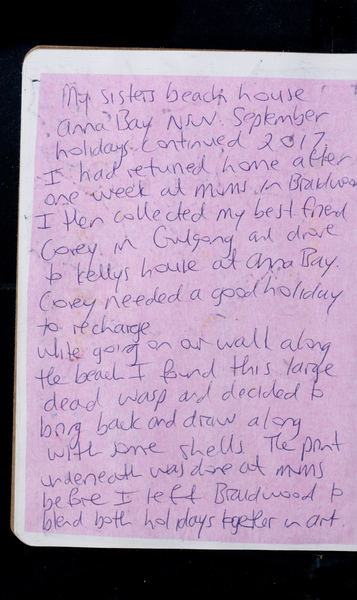 My sisters beach house
Anna Bay NSW. September
holidays continued 2017
I had retuned home after
one week at mums in Braidwood
I then collected my best friend
Corey in Gulgong and drove
to Kellys house at Anna Bay.
Corey needed a good holiday
to recharge
while going on our wall along
the beach I found this large
dead wasp and decided to
bring back and draw along
with some shells. The print
underneath was done at mums
before I left Braidwood to
blend both holidays together in art.